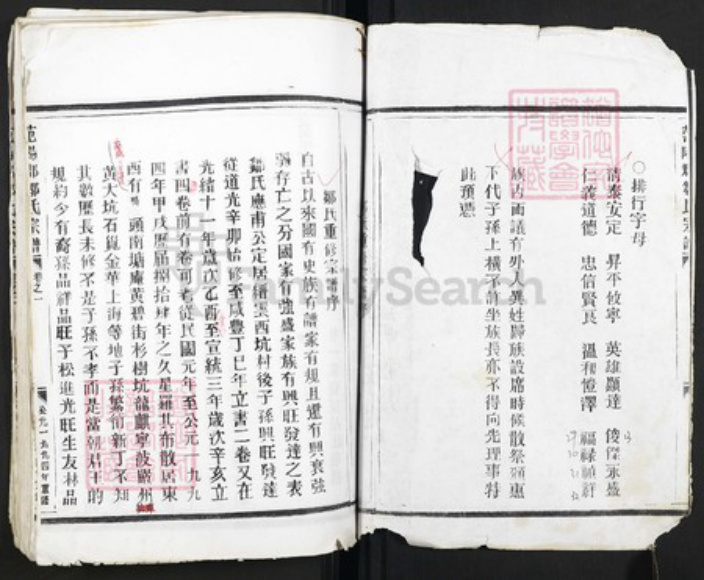 ○排行字母
清泰安定 昇平攸寧 英雄顯達 俊傑永盛
仁義道德 忠信賢良 溫和憶澤 福祿禎祥
族內面議有外人異姓歸族設席時候散祭頒惠
下代子孫上橫不許坐族長亦不得向先理事特
此預憑
鄒氏重修宗譜序
自古以來國有史族有譜家有規且還有興衰強
弱存亡之分國家有強盛家族有興旺發達之表
鄒氏應甫公定居縉雲西坑村後子孫興旺發達
從道光辛卯始修至咸豐丁巳年立書二卷又在
光緒十一年歲次乙酉至宣統三年歲次辛亥立
書四卷前有卷可考從民國元年至公元一九九
四年甲戌歷屆捌拾肆年之久星羅其布散居東
西有 頭南塘庵黃碧街杉樹坑龍 寧波嚴州
黃大坑石 金華上海等地子孫繁衍新丁不知
其數歷長未修不是子孫不孝而是當朝君干的
規約今有裔孫品祥品旺于松進光旺生友林品
范陽郡鄒氏宗譜 卷之一
公元一九九四年重修
FamilySearch